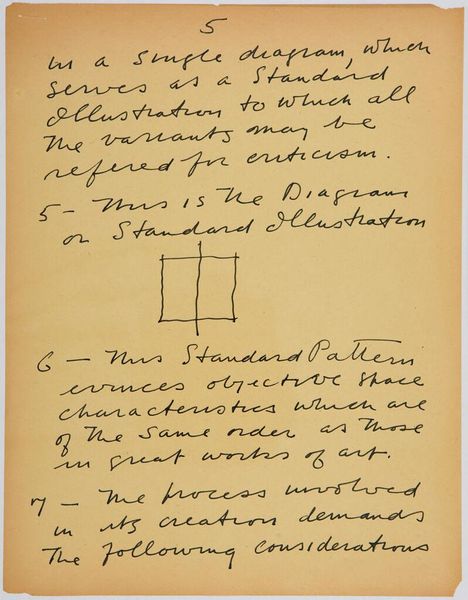 5
in a single diagram, which
serves as a Standard
Illustration to which all
The variants may be
refered for criticism.
5 – This is The Diagram
or Standard Illustration
6 – This Standard Pattern
evinces objective space
characteristics which are
of The same order as Those
in great works of art.
7 – The process involved
in its creation demands
The following considerations